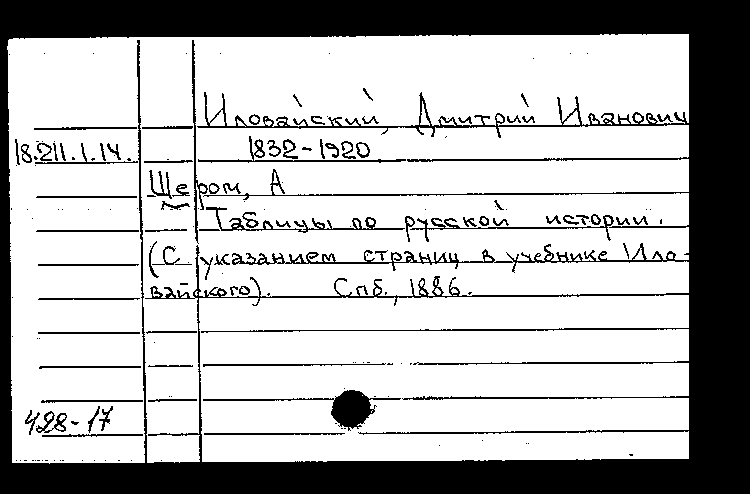 Иловайский, Дмитрий Иванович
18.211.1.14. 1832-1920
Щером, А
Таблицы по русской истории.
(С указанием страниц в учебнике Ило-
вайского). Спб., 1886.
428-17